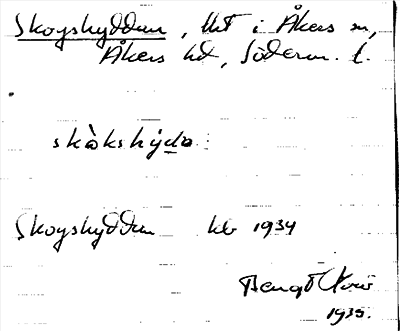 Skogshyddan, lht i Åkers sn,
Åkers hd, Söderm. l.
skòkshỳda
Skogshyddan kb 1934
Bengt
1935.